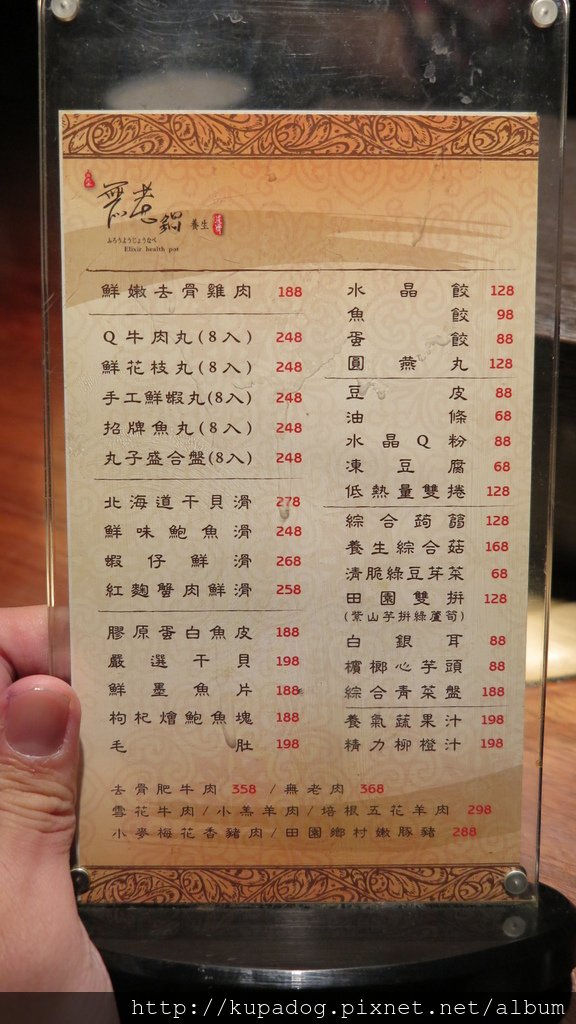 無老鍋 養生
ふろうようじょうなべ
Elixir health pot
鮮嫩去骨雞肉 188
Q牛肉丸(8入) 248
鮮花枝丸(8入) 248
手工鮮蝦丸(8入) 248
招牌魚丸(8入) 248
丸子盛合盤(8入) 248
北海道干貝滑 278
鮮味鮑魚滑 248
蝦仔鮮滑 268
紅麴蟹肉鮮滑 258
膠原蛋白魚皮 188
嚴選干貝 198
鮮墨魚片 188
枸杞燴鮑魚塊 188
毛肚 198
水晶餃 128
魚餃 98
蛋餃 88
圓燕丸 128
豆皮 88
油條 68
水晶Q粉 88
凍豆腐 68
低熱量雙捲 128
綜合蒟蒻 128
養生綜合菇 168
清脆綠豆芽菜 68
田園雙拼 128
(紫山芋拼綠蘆筍)
白銀耳 88
檳榔心芋頭 88
綜合青菜盤 188
養氣蔬果汁 198
精力柳橙汁 198
去骨肥牛肉 358 /無老肉 368
雪花牛肉/小羔羊肉/培根五花羊肉 298
小麥梅花香豬肉/田園鄉村嫩豚豬 288
http://kupadog.pixnet.net/album